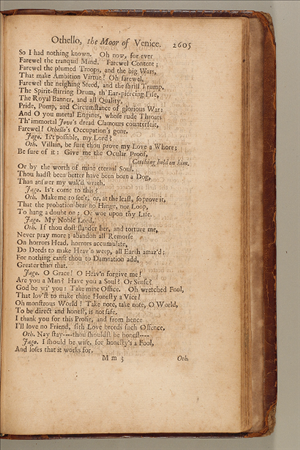 Othello, the Moor of Venice. 2605
So I had nothing known. Oh now, for ever
Farewel the tranquil Mind. Farewel Content;
Farewel the plumed Troops, and the big Wars,
That make Ambition Virtue! Oh farewel,
Farewel the neighing Steed, and the shrill Trump,
The Spirit-stirring Drum, th'Ear-piercing Fife,
The Royal Banner, and all Quality,
Pride, Pomp, and Circumstance of glorious War:
And O you mortal Engines, whose rude Throats
Th'immortal Jove's dread Clamours counterfeit,
Farewel! Othello's Occupation's gone.
Jago. Is't possible, my Lord?
Oth. Villain, be sure thou prove my Love a Whore;
Be sure of it: Give me the Ocular Proof,
[Catching hold on him.
Or by the worth of mine eternal Soul,
Thou hadst been better have been born a Dog,
Than answer my wak'd wrath.
Jago. Is't come to this?
Oth. Make me to see't, or, at the least, so prove it,
That the probation bear no Hinge, nor Loop,
To hang a doubt on: Or woe upon thy Life.
Jago. My Noble Lord.
Oth. If thou dost slander her, and torture me,
Never pray more; abandon all Remorse
On horrors Head, horrors accumulate,
Do Deeds to make Heav'n weep, all Earth amaz'd;
For nothing canst thou to Damnation add,
Greater than that.
Jago. O Grace! O Heav'n forgive me!
Are you a Man? Have you a Soul? Or Sense?
God be wi' you: Take mine Office. Oh wretched Fool,
That lov'st to make thine Honesty a Vice!
Oh monstrous World! Take note, take note, O World,
To be direct and honest, is not safe.
I thank you for this Profit, and from hence
I'll love no Friend, sith Love breeds such Offence.
Oth. Nay stay----thou shouldst be honest----
Jago. I should be wise, for honesty's a Fool,
And loses that it works for.
M m 3 Oth.